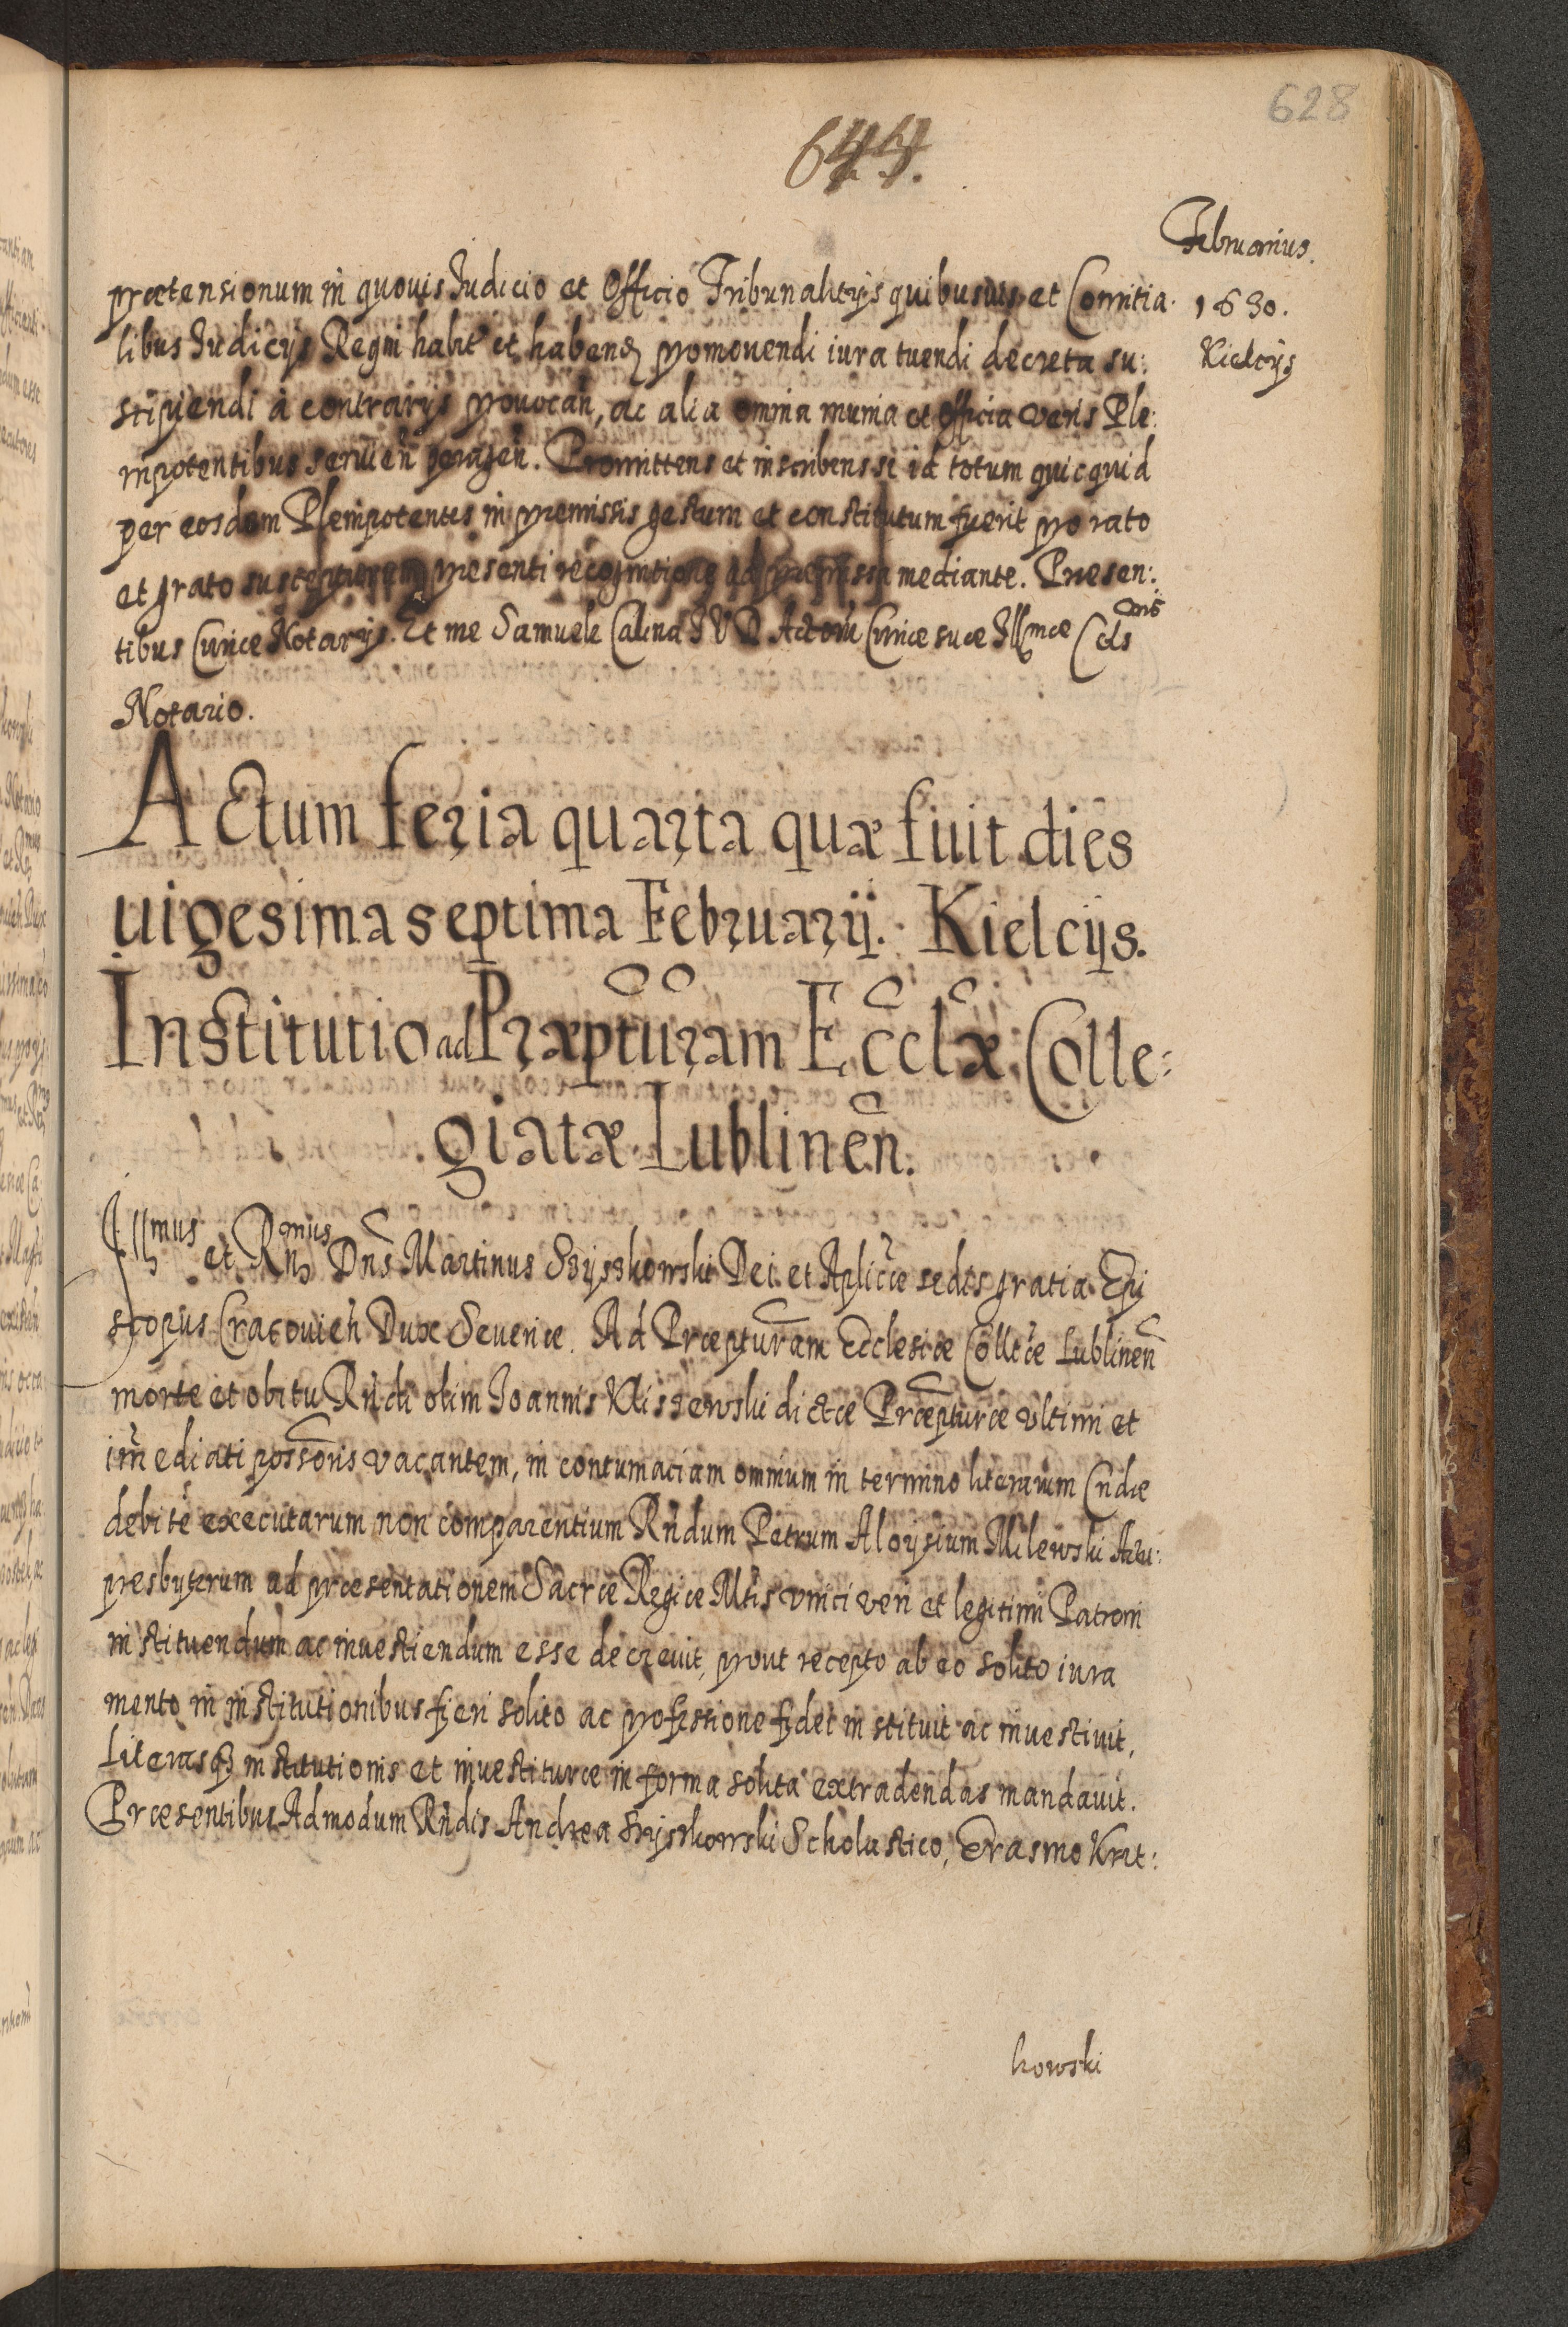 628
644.
Februarius.
1630.
Kielcijs
prætensionum in quouis Iudicio et Officio Tribunalitijs quibusuis et Comitia-
libus Iudicijs Regni habit et haben promouendi iura tuendi decreta su:
scipiendi à contrarijs prouocan̄, ac alia omnia munia et officia veris Ple:
nipotentibus seruien̄ peragen̄. Promittens et inscribens se id totum quicquid
per eosdem Plenipotentes in præmissis gestum et constitutum fuerit pro rato
et grato suscepturum præsenti recognitione ad præmissa mediante. Præsen:
tibus Curiæ Notarijs. Et me Samuele Calina I V D Actorū Curiæ suæ Illmæ Cels
Notario.
Actum feria quarta quæ fuit dies
uigesima septima Februarij. Kielcijs.
Institutio ad Præpturam Eccłæ Colle:
giatæ Lublinen̄.
Illmus et Rn̄mus Dns̄ Martinus Szyszkowski Dei et Aplicæ sedis gratia Epi
scopus Cracouien̄ Dux Seueriæ. Ad Præpturam Ecclesiæ Colltæ Lublinen̄
morte et obitu Rn̄di olim Ioannis Kliszewski dictæ Præpturæ vltimi et
im̄ediati possoris vacantem, in contumaciam omnium in termino literarum Cridæ
debitè executarum non comparentium Rn̄dum Petrum Aloysium Milewski Archi:
presbyterum ad præsentationem Sacræ Regiæ Mtis vnici veri et legitimi Patroni
instituendum ac inuestiendum esse decreuit, prout recepto ab eo solito iura
mento in institutionibus fieri solito ac professione fidei instituit ac inuestiuit,
Literasq3 institutionis et inuestituræ in forma solita extradendas mandauit.
Præsentibus Admodum Rn̄dis Andrea Szyszkowski Scholastico, Erasmo Kret:
kowski